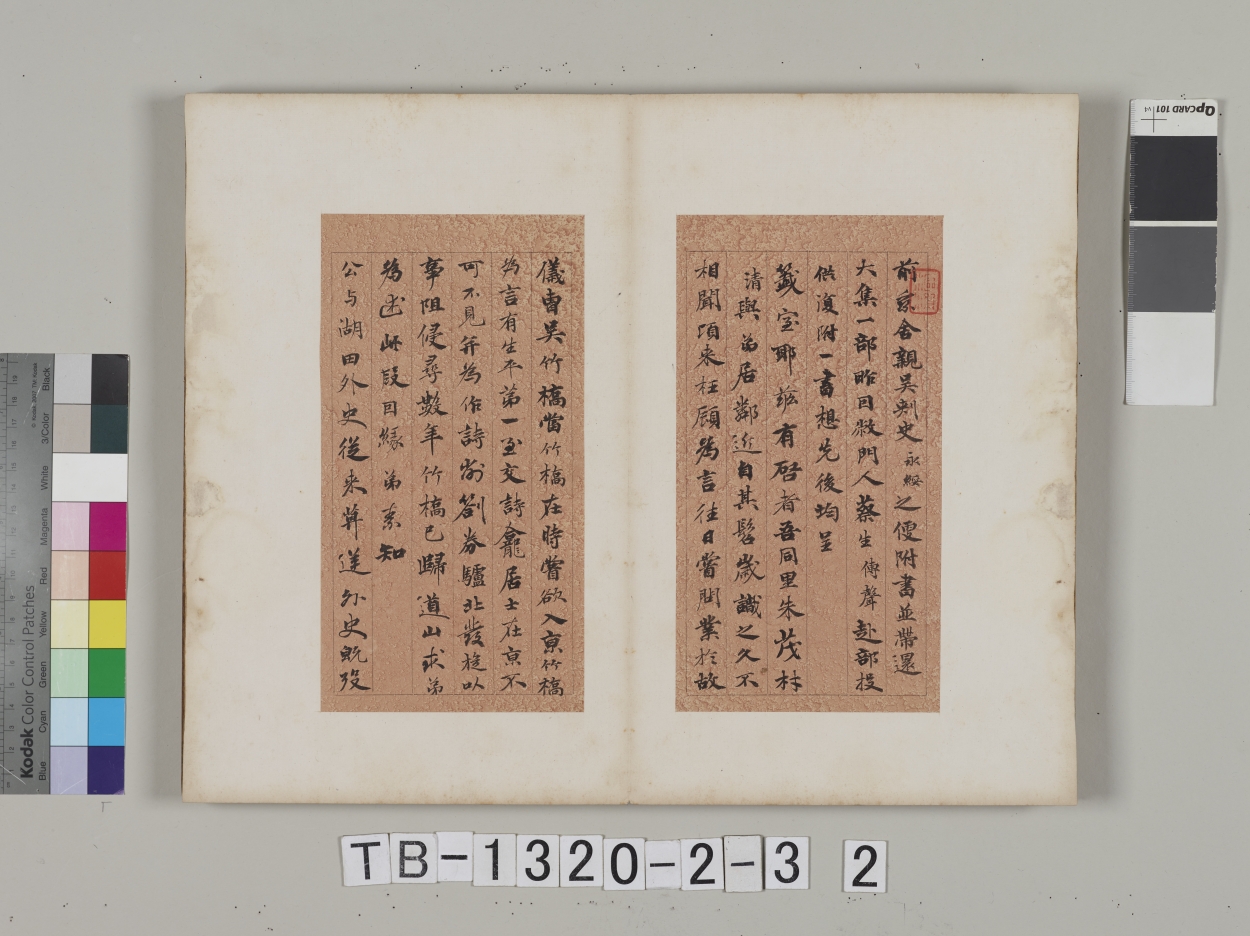 前京舍親吳刺史永綏之便附書並帶還
大集一部昨因敝門人蔡生傳聲赴部投
供復附一書想先後均呈
籤室耶茲有啓者吾同里朱茂材
清與弟居鄰近自其髫歲識之久不
相聞頃來枉顧為言往日嘗肄業於故
儀曹吳竹橋當竹橋在時嘗欲入京竹橋
為言有生平第一至交詩龕居士在京不
可不見并為作詩劄劄券驢北發旋以
事阻侵尋數年竹橋已歸道山求弟
為述此段因緣弟素知
公与湖田外史從來算逆外史既歿
QPCARD 101 v4
Kodak Color Control Patches
© Kodak
Blue Cyan Green Yellow Red Magenta White 3/Color Black
TB-1320-2-3 2